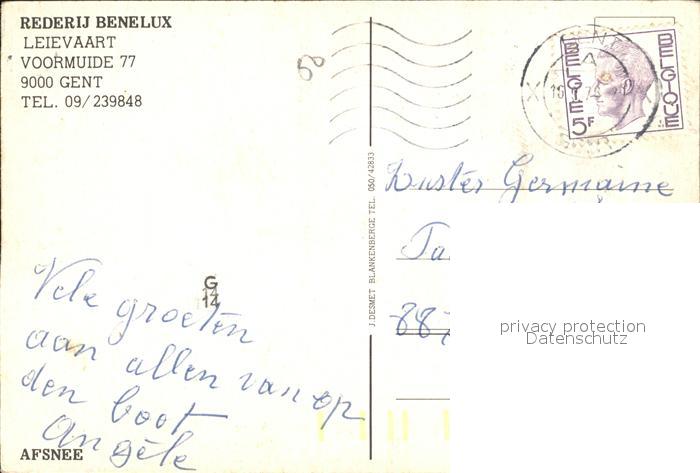 REDERIJ BENELUX
LEIEVAART
VOORMUIDE 77
9000 GENT
TEL. 09/239848
BELGIQUE
BELGIE
5F
Zuster Germaine
Ta
887
J. DESMET BLANKENBERGE TEL. 050/42833
G
14
Vele groeten
aan allen van op
den boot
Angèle
AFSNEE
privacy protection
Datenschutz